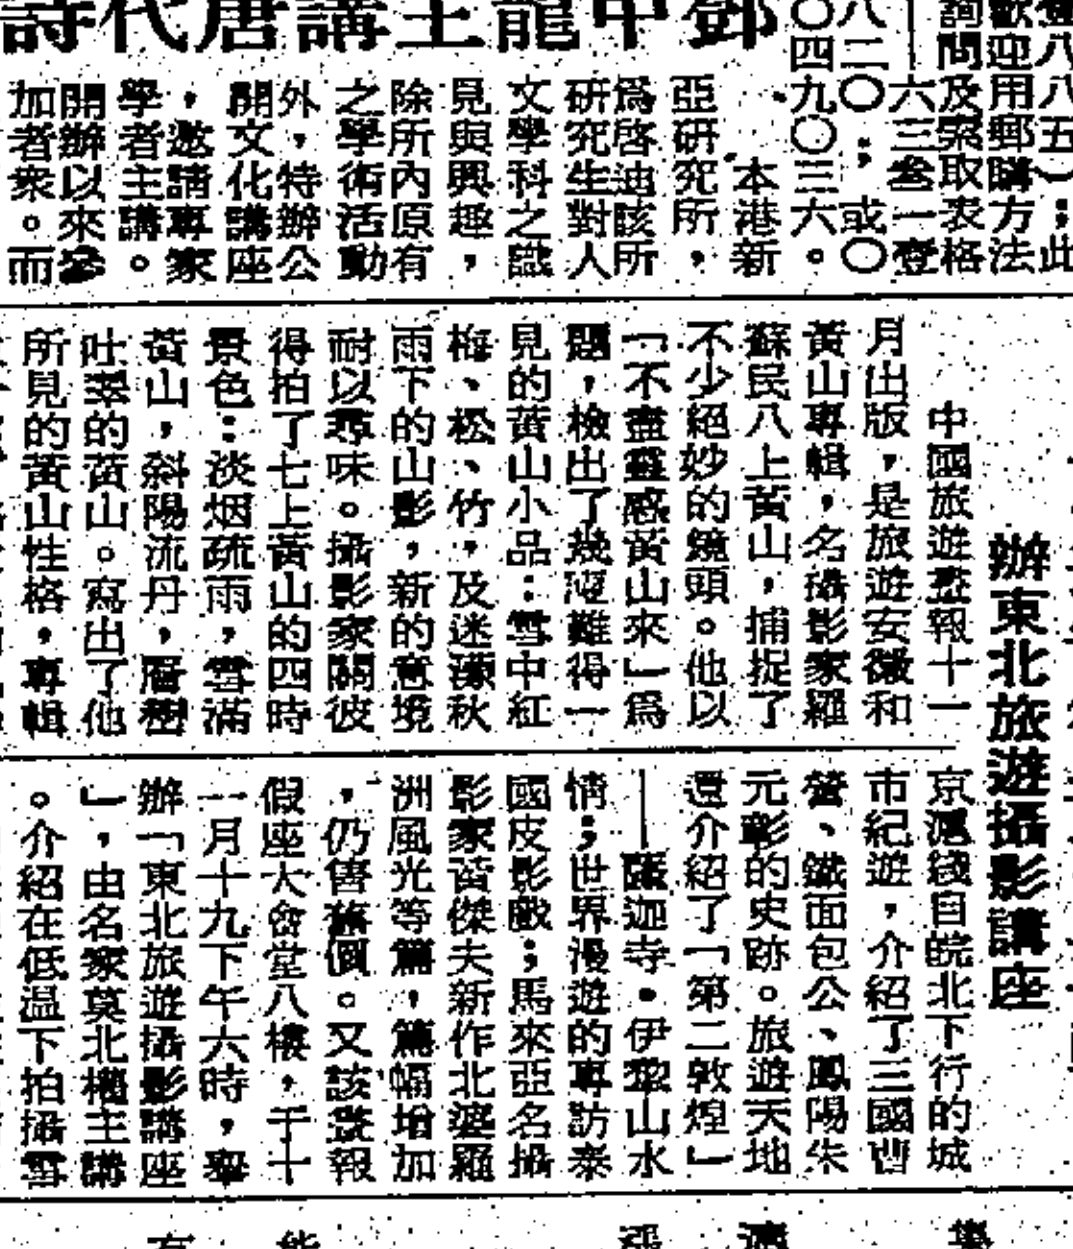 歡迎用郵購方法
詢問及索取表格
六三叁一壹
八二〇；或〇
〇四九〇三六。
鄧中龍主講唐代詩
本港新
亞研究所，
爲啓迪該所
研究生對人
文學科之識
見與興趣，
除所內原有
之學術活動
外，特辦公
開文化講座
，邀請專家
學者主講。
開辦以來參
加者衆。而
辦東北旅遊攝影講座
中國旅遊畫報十一
月出版，是旅遊安徽和
黃山專輯，名攝影家羅
蘇民八上黃山，捕捉了
不少絕妙的鏡頭。他以
「不盡靈感黃山來」爲
題，檢出了幾幅難得一
見的黃山小品：雪中紅
梅、松、竹，及迷濛秋
雨下的山影，新的意境
耐以尋味。攝影家關彼
得拍了七上黃山的四時
景色：淡烟疏雨，雪滿
黃山，斜陽流丹，層樹
吐翠的黃山。寫出了他
所見的黃山性格，專輯
京滬綫自皖北下行的城
市紀遊，介紹了三國曹
營、鐵面包公、鳳陽朱
元彰的史跡。旅遊天地
還介紹了「第二敦煌」
——薩迦寺・伊犂山水
情；世界漫遊的專訪泰
國皮影戲；馬來亞名攝
影家黃傑夫新作北婆羅
洲風光等篇，篇幅增加
，仍售舊價。又該畫報
假座大會堂八樓，于十
一月十九下午六時，舉
辦「東北旅遊攝影講座
」，由名家莫北權主講
。介紹在低温下拍攝雪